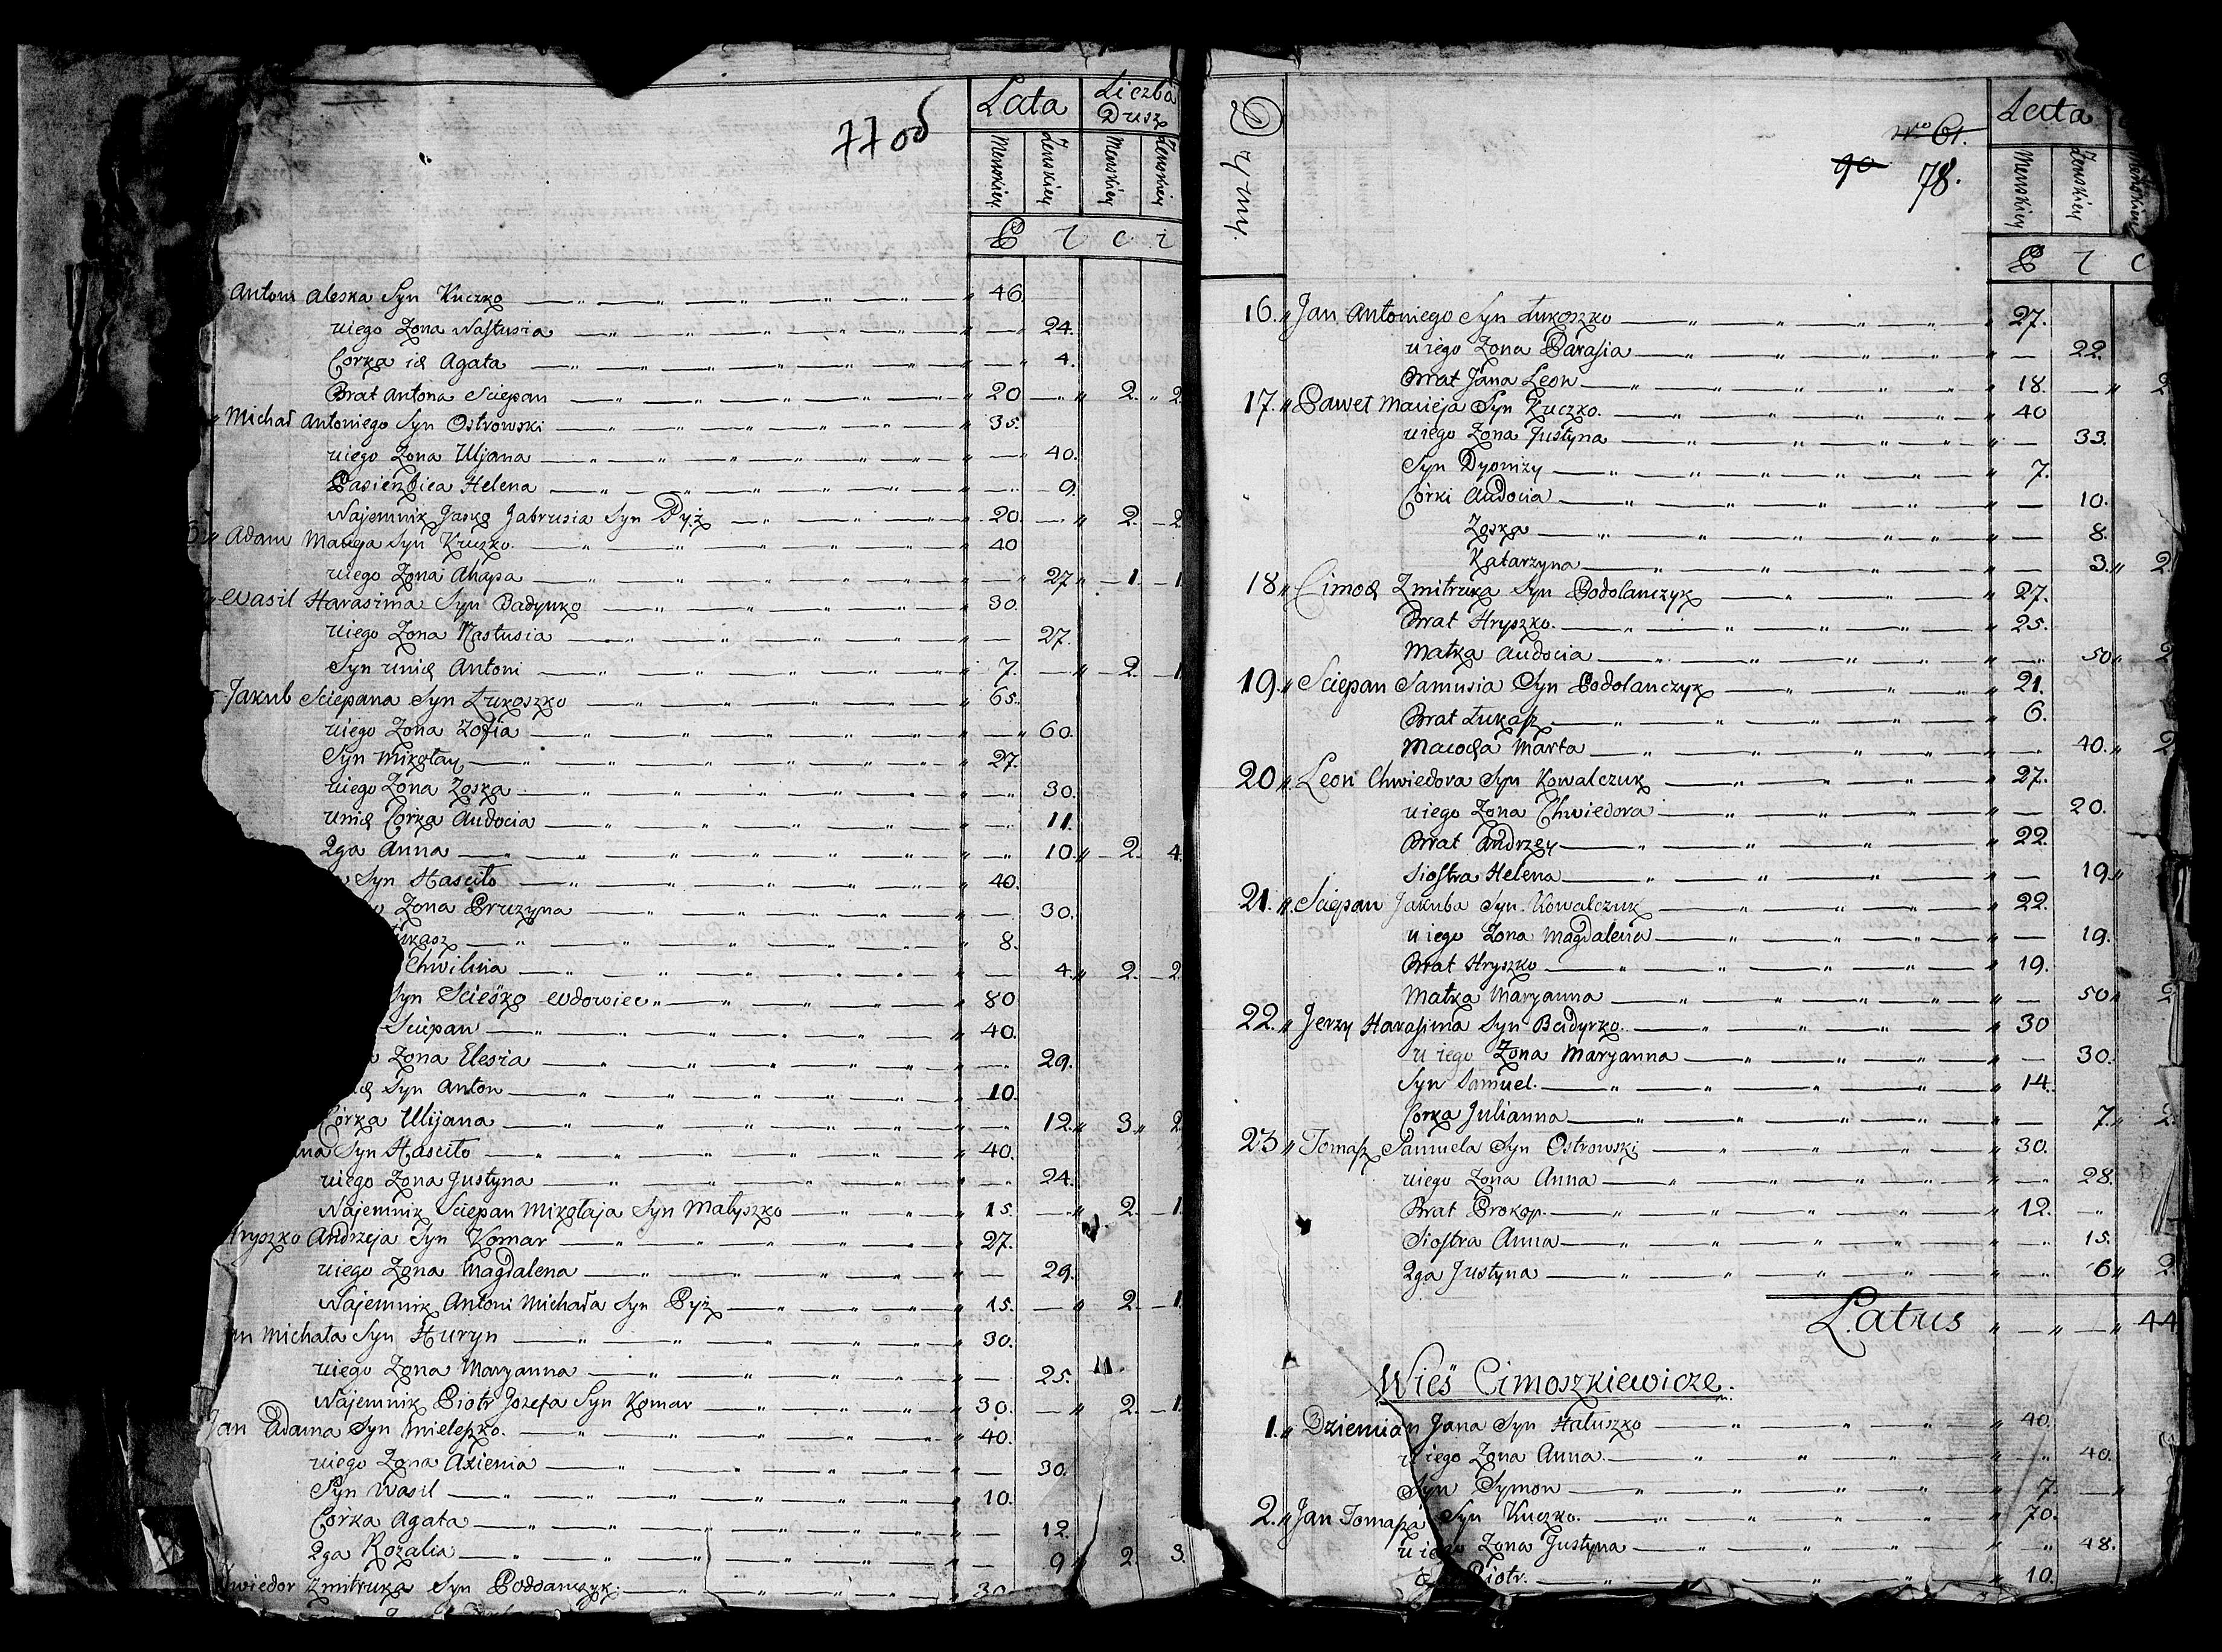 77 об
Lata Liczba Dusz
Męskiey Żeńskiey Męskiey Żeńskiey
Antoni Aleska Syn Kuczko 46.
u iego Żona Nastusia 24.
Corka ich Agata 4.
Brat Antona Sciepan 20 2. 2
Michał Antoniego Syn Ostrowski 35.
u iego Żona Uljana 40.
Pasierbica Helena 9.
Najemnik Jasko Jabrusia Syn Pyż 20. 2. 2
Adam Macieja Syn Kruszko. 40
u iego Żona Ahapa 27 1. 1
Wasil Harasima Syn Badynko 30.
u iego Żona Nastusia 27.
Syn u nich Antoni 7. 2. 1
Jakub Sciepana Syn Łukoszko 65.
u iego Żona Zofia 60.
Syn Mikołay 27.
u iego Żona Zoska 30.
u nich Corka Audocia 11.
2ga Anna 10. 2. 4.
Syn Hasciło 40.
Żona Pruzyna 30.
Łukasz 8.
Chwilina 4. 2. 2
Syn Scieśko wdowiec 80
Sciepan 40.
Żona Elesia 29.
Syn Anton 10.
Córka Ulijana 12. 3 2
Syn Hasciło 40.
u iego Żona Justyna 24.
Najemnik Sciepan Mikołaja Syn Małyszko 15. 2. 1
Hryszko Andrzeja Syn Komar 27.
u iego Żona Magdalena 29.
Najemnik Antoni Michała Syn Pyż 15. 2. 1
Michała Syn Huryn 30.
u iego Żona Maryanna 25.
Najemnik Piotr Jozefa Syn Komar 30. 2. 1
Jan Adama Syn Mieleszko. 40.
u iego Żona Axienia 30.
Syn Wasil 10.
Córka Agata 12.
2ga Rozalia 9 2. 3.
Chwiedor Zmitruka Syn Poddanczyk. 30
Dymy
61.
90 78.
Lata
Męskiey Żeńskiey Męskiey
16. Jan Antoniego Syn Łukoszko 27.
u iego Żona Parasia 22.
Brat Jana Leon 18. 2
17. Paweł Macieja Syn Kuczko. 40
u iego Żona Justyna 33.
Syn Dyonizy 7.
Córki Audocia 10.
Zoska 8.
Katarzyna 3. 2
18. Cimoch Zmitruka Syn Podolanczyk 27.
Brat Hryszko. 25.
Matka Audocia 50 2
19. Sciepan Samusia Syn Podolanczyk 21.
Brat Łukasz 6.
Macocha Marta 40. 2
20. Leon Chwiedora Syn Kowalczuk 27.
u iego Żona Chwiedora 20.
Brat Andrzey 22.
Siostra Helena 19.
21. Sciepan Jakuba Syn Kowalczuk 22.
u iego Żona Magdalena 19.
Brat Hryszko 19.
Matka Maryanna 50 2
22. Jerzy Harasima Syn Badyrko. 30
u iego Żona Maryanna 30.
Syn Samuel. 14.
Corka Julianna 7. 2
23 Tomasz Samuela Syn Ostrowski 30.
u iego Żona Anna 28.
Brat Prokop. 12.
Siostra Anna 15.
2ga Justyna 6 2
Latus 44
Wieś Cimoszkiewicze.
1. Dziemian Jana Syn Hałuszko 40.
u iego Żona Anna. 40.
Syn Symon 7.
2. Jan Tomasza Syn Kuczko. 70.
u iego Żona Justyna 48.
Syn Piotr. 10.